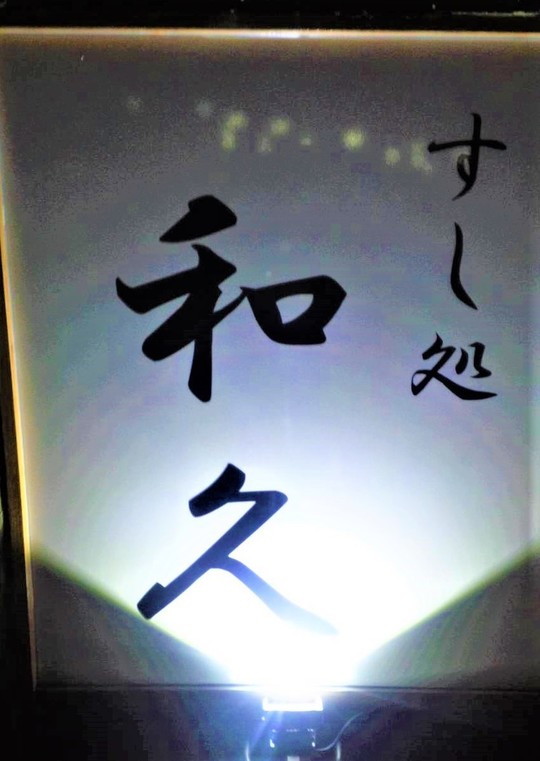 すし処
和久